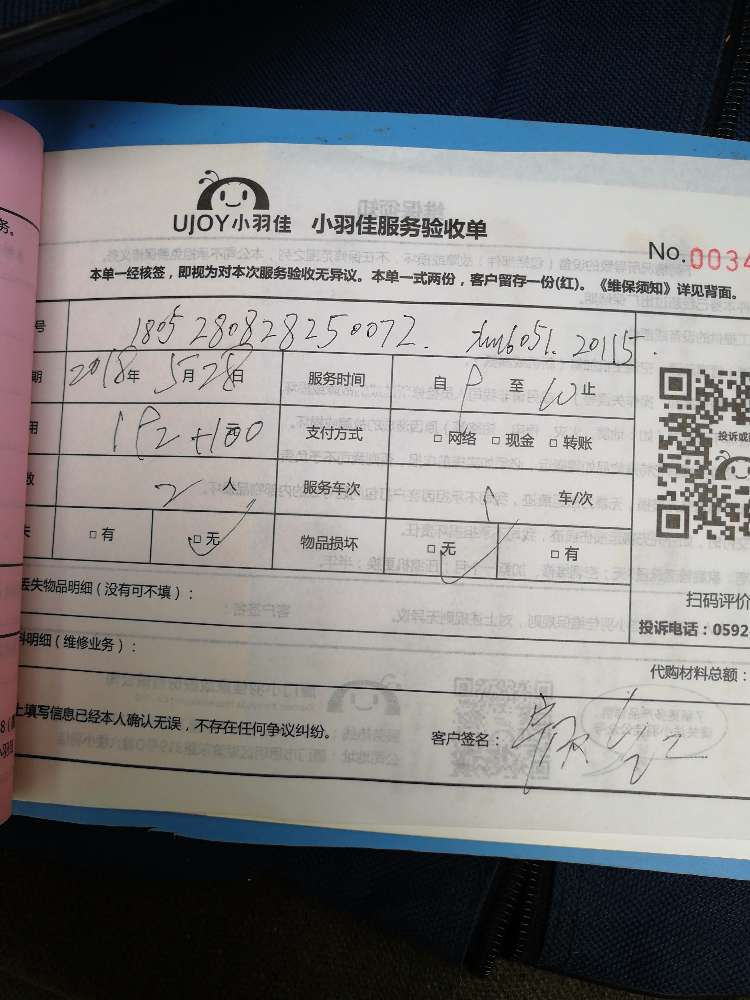 务。
UJOY小羽佳 小羽佳服务验收单
No.0034
本单一经核签，即视为对本次服务验收无异议。本单一式两份，客户留存一份(红)。《维保须知》详见背面。
号 1805280828250072. 20115.
期 2018年 5月28日 服务时间 自 至 10 止
用 192+100 元 支付方式 □网络 □现金 □转账
数 2 人 服务车次 1 车/次
失 □有 □无 物品损坏 □无 □有
投诉或
扫码评价
投诉电话：0592
丢失物品明细（没有可不填）：
料明细（维修业务）：
代购材料总额：
上填写信息已经本人确认无误，不存在任何争议纠纷。
客户签名：